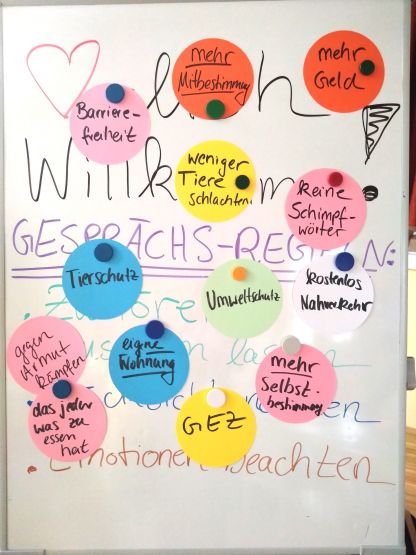 mehr
Mitbestimmung
mehr
Geld
Barriere-
freiheit
lich
Willk m !
weniger
Tiere
schlachten
keine
Schimpf-
wörter
GESPRÄCHS-REGELN:
Tierschutz
Umweltschutz
kostenlos
Nahverkehr
gegen
Armut
kämpfen
eigene
Wohnung
mehr
Selbst-
bestimmung
das jeder
was zu
essen
hat
GEZ
lassen
. Emotionen beachten